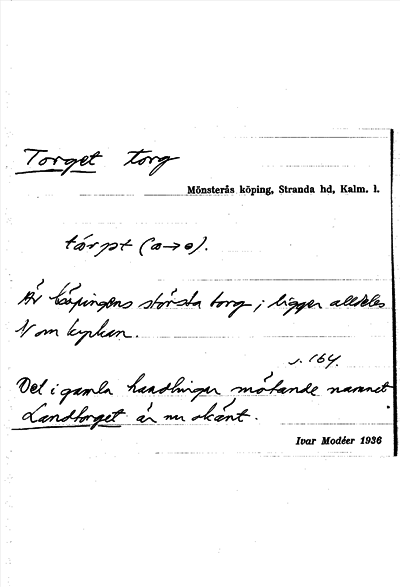 Torget torg
Mönsterås köping, Stranda hd, Kalm. l.
tórpt (a→o).
Är köpingens största torg; ligger alldeles
N om kyrkan.
s. 164.
Det i gamla handlingar mötande namnet
Landtorget är nu okänt.
Ivar Modéer 1936